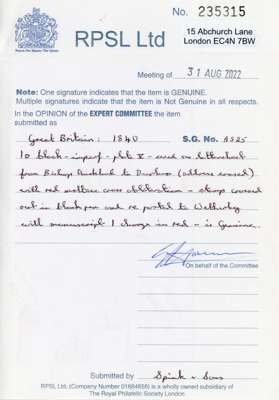 No. 235315
RPSL Ltd
15 Abchurch Lane
London EC4N 7BW
Meeting of 31 AUG 2022
Note: One signature indicates that the item is GENUINE.
Multiple signatures indicate that the item is Not Genuine in all respects.
In the OPINION of the EXPERT COMMITTEE the item
submitted as
Great Britain: 1840 S.G. No. AS25
1d black - imperf - plate V - used on lettersheet
from Bishop Auckland to Durham (address erased)
with red maltese cross obliteration - stamp crossed
out in black pen and re posted to Wetherby
with manuscript 1 charge in red - is Genuine.
On behalf of the Committee
Submitted by Spink & Sons
RPSL Ltd. (Company Number 01684656) is a wholly owned subsidiary of
The Royal Philatelic Society London